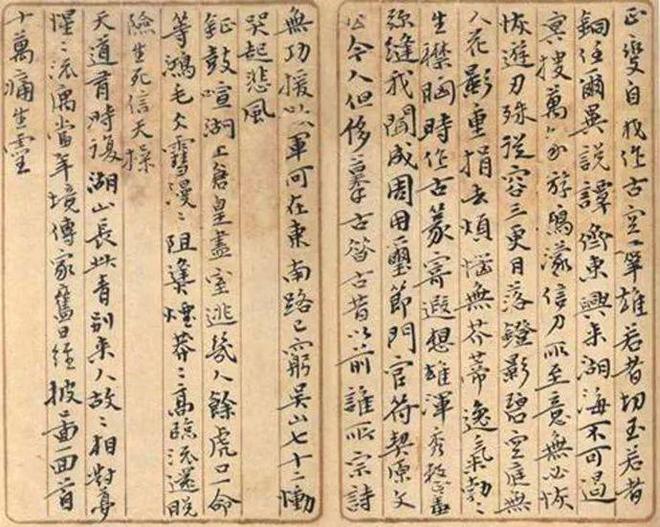 正變自我作古空羣雄若者切玉若者
銅任爾異說譚儕東興來湖海不可遏
冥搜萬象游鴻濛信刀所至意無必恢
恢遊刃殊從容三更月落鐙影碧空庭無
人花影重捐去煩惱無芥蒂逸氣勃〻
生襟胸時作古篆寄遐想雄渾秀整羞
彌縫我聞成周用璽節門官符契原文
公今人但侈摹古昔古昔以前誰所宗詩
無功援此軍可在東南路已窮吳山七十二慟
哭起悲風
鉦鼓喧湖上倉皇盡室逃幾人餘虎口一命
等鴻毛大雪漫〻阻叢煙莽〻高臨流還脫
險生死信天操
天道有時復湖山長此青別來人故〻相對夢
惺〻流寓當年境傳家舊日經披圖一回首
十萬痛生靈